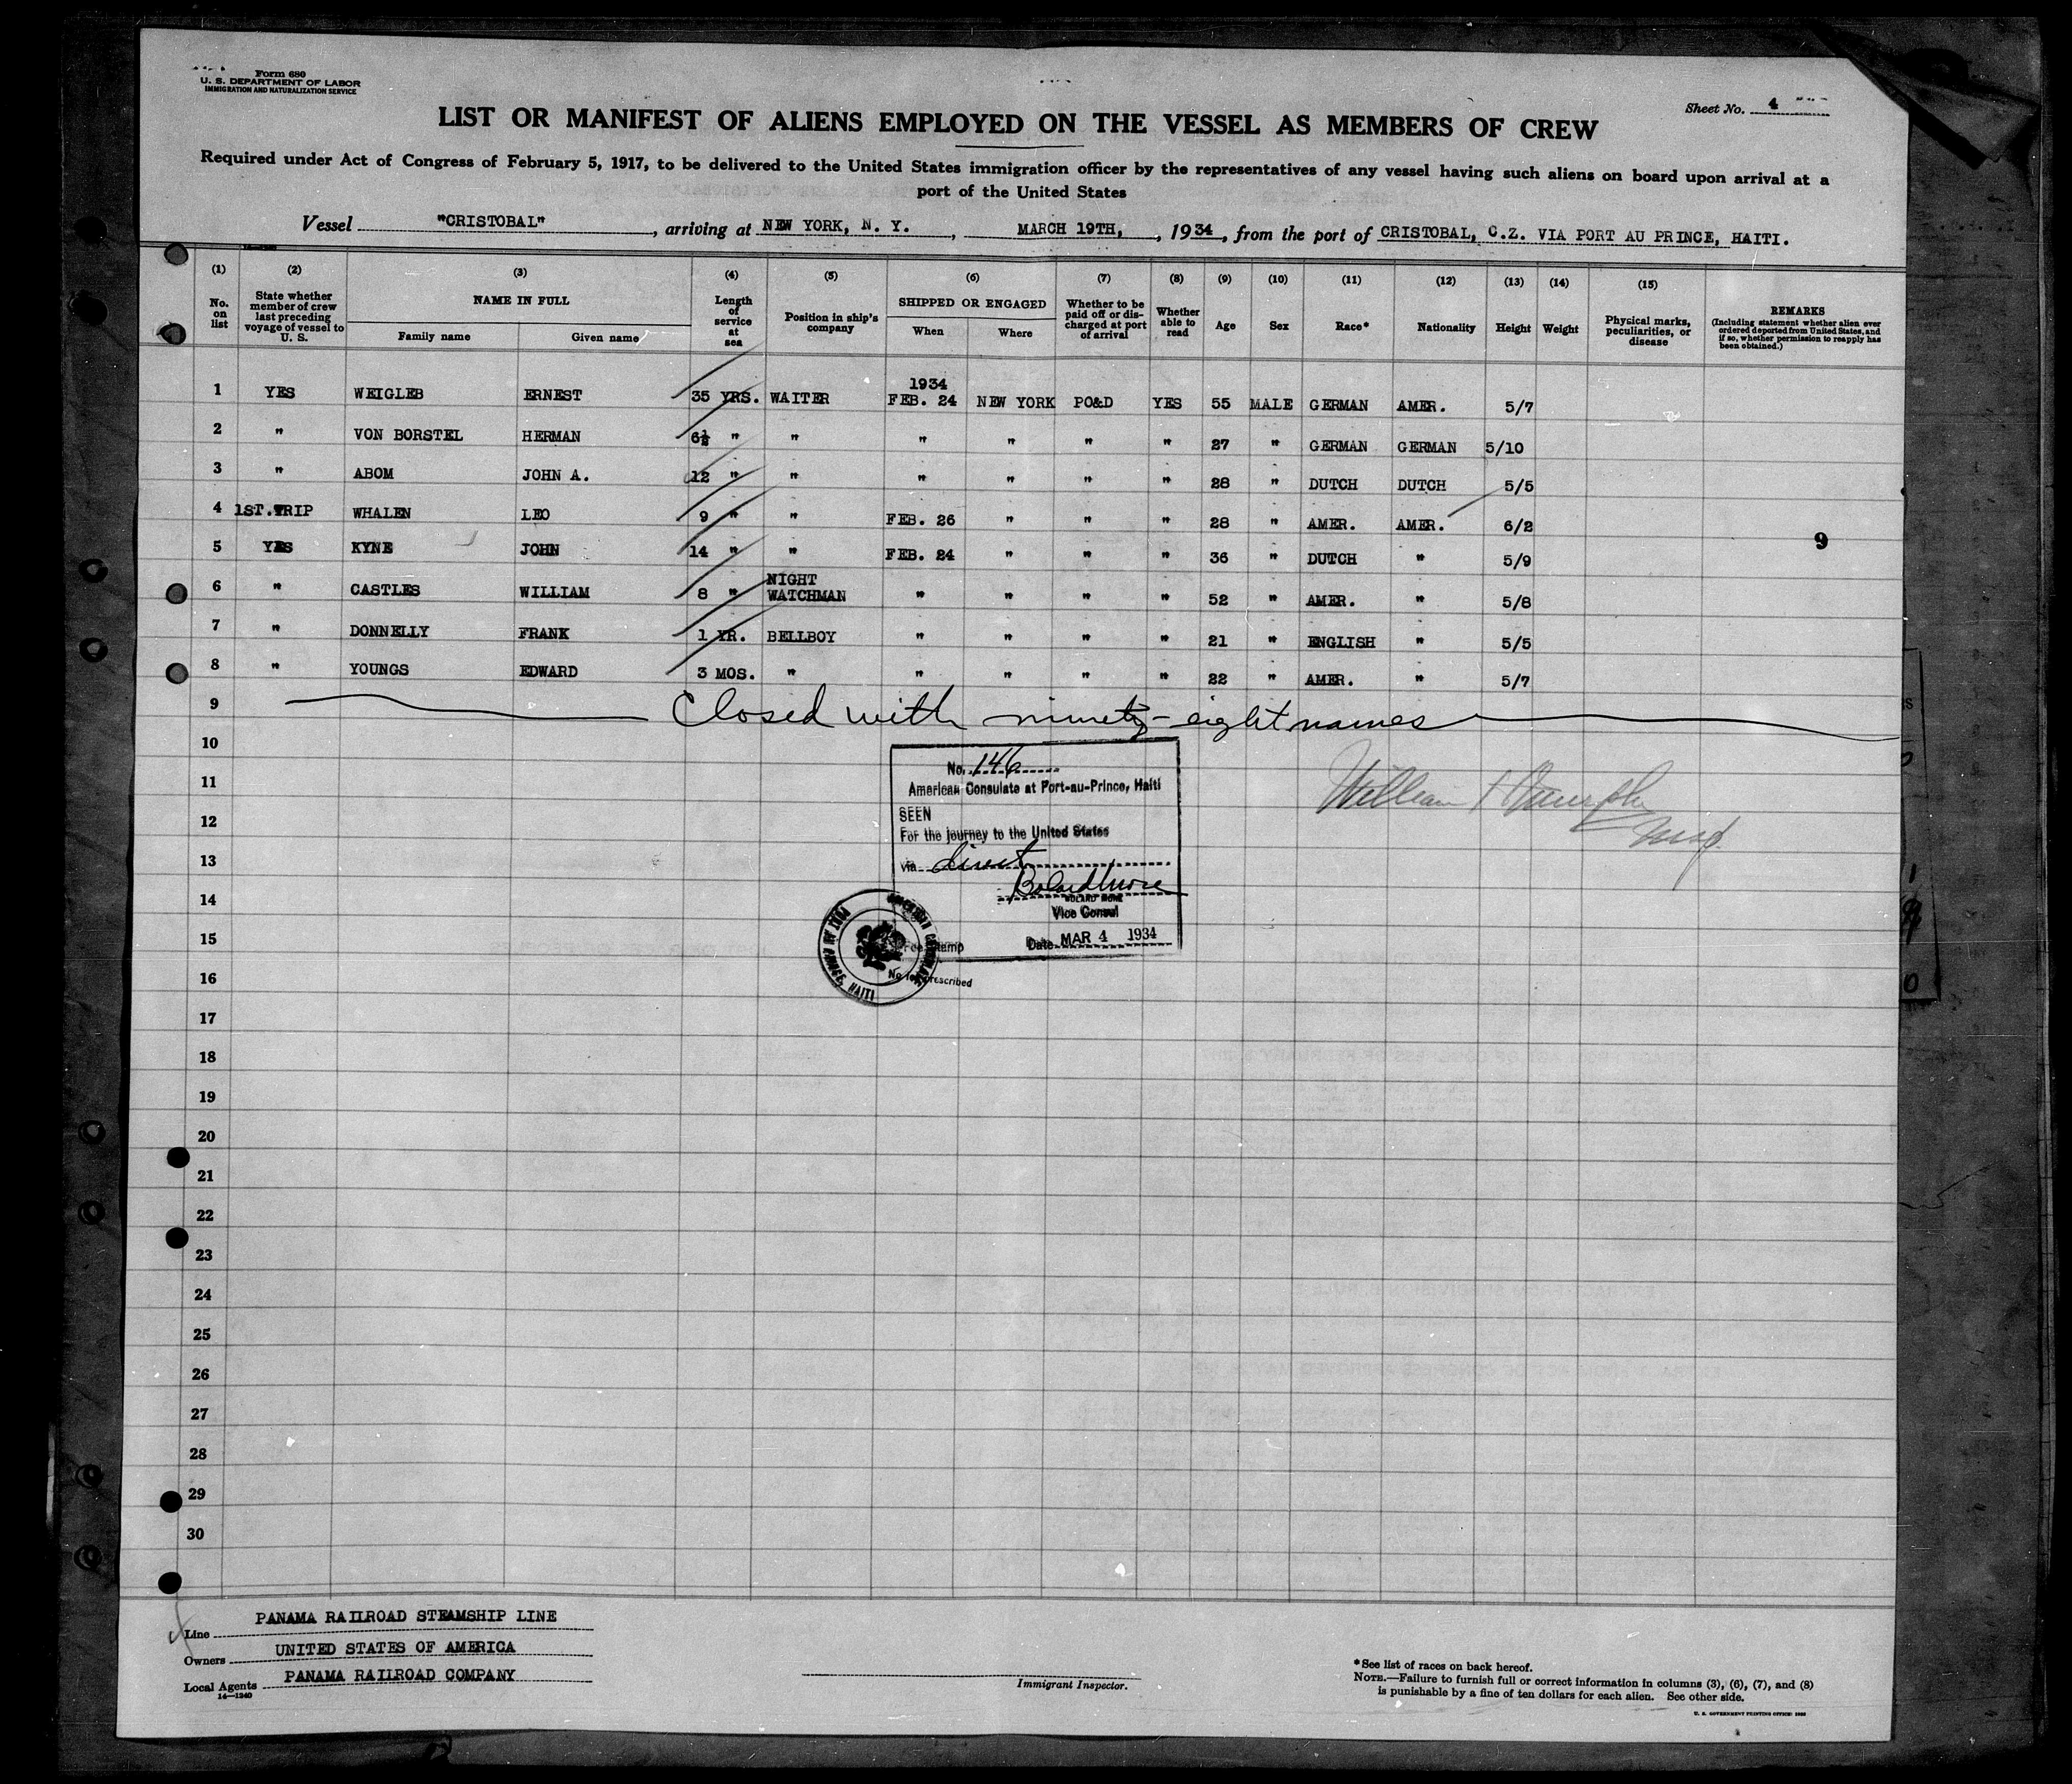 Form 680
U. S. DEPARTMENT OF LABOR
IMMIGRATION AND NATURALIZATION SERVICE
Sheet No. 4
LIST OR MANIFEST OF ALIENS EMPLOYED ON THE VESSEL AS MEMBERS OF CREW
Required under Act of Congress of February 5, 1917, to be delivered to the United States immigration officer by the representatives of any vessel having such aliens on board upon arrival at a
port of the United States
Vessel "CRISTOBAL", arriving at NEW YORK, N. Y., MARCH 19TH, 1934, from the port of CRISTOBAL, C.Z. VIA PORT AU PRINCE, HAITI.
(1) (2) (3) (4) (5) (6) (7) (8) (9) (10) (11) (12) (13) (14) (15)
No. on list
State whether member of crew last preceding voyage of vessel to U. S.
NAME IN FULL
Family name
Given name
Length of service at sea
Position in ship's company
SHIPPED OR ENGAGED
When
Where
Whether to be paid off or discharged at port of arrival
Whether able to read
Age
Sex
Race*
Nationality
Height
Weight
Physical marks, peculiarities, or disease
REMARKS
(Including statement whether alien ever ordered deported from United States, and if so, whether permission to reapply has been obtained.)
1 YES WEIGLEB ERNEST 35 YRS. WAITER 1934 FEB. 24 NEW YORK PO&D YES 55 MALE GERMAN AMER. 5/7
2 " VON BORSTEL HERMAN 6½ " " " " " " 27 " GERMAN GERMAN 5/10
3 " ABOM JOHN A. 12 " " " " " " 28 " DUTCH DUTCH 5/5
4 1ST.TRIP WHALEN LEO 9 " " FEB. 26 " " " 28 " AMER. AMER. 6/2
5 YES KYNE JOHN 14 " " FEB. 24 " " " 36 " DUTCH " 5/9
9
6 " CASTLES WILLIAM 8 " NIGHT WATCHMAN " " " " 52 " AMER. " 5/8
7 " DONNELLY FRANK 1 YR. BELLBOY " " " " 21 " ENGLISH " 5/5
8 " YOUNGS EDWARD 3 MOS. " " " " " 22 " AMER. " 5/7
9 Closed with ninety-eight names
10
11
12
13
14
15
16
17
18
19
20
21
22
23
24
25
26
27
28
29
30
No. 146
American Consulate at Port-au-Prince, Haiti
SEEN
For the journey to the United States
via direct
Vice Consul
Fee Stamp
Date MAR 4 1934
No fee prescribed
AMERICAN CONSULATE
PORT AU PRINCE, HAITI
William
Insp.
Line PANAMA RAILROAD STEAMSHIP LINE
Owners UNITED STATES OF AMERICA
Local Agents PANAMA RAILROAD COMPANY
14—1240
Immigrant Inspector.
*See list of races on back hereof.
NOTE.—Failure to furnish full or correct information in columns (3), (6), (7), and (8)
is punishable by a fine of ten dollars for each alien. See other side.